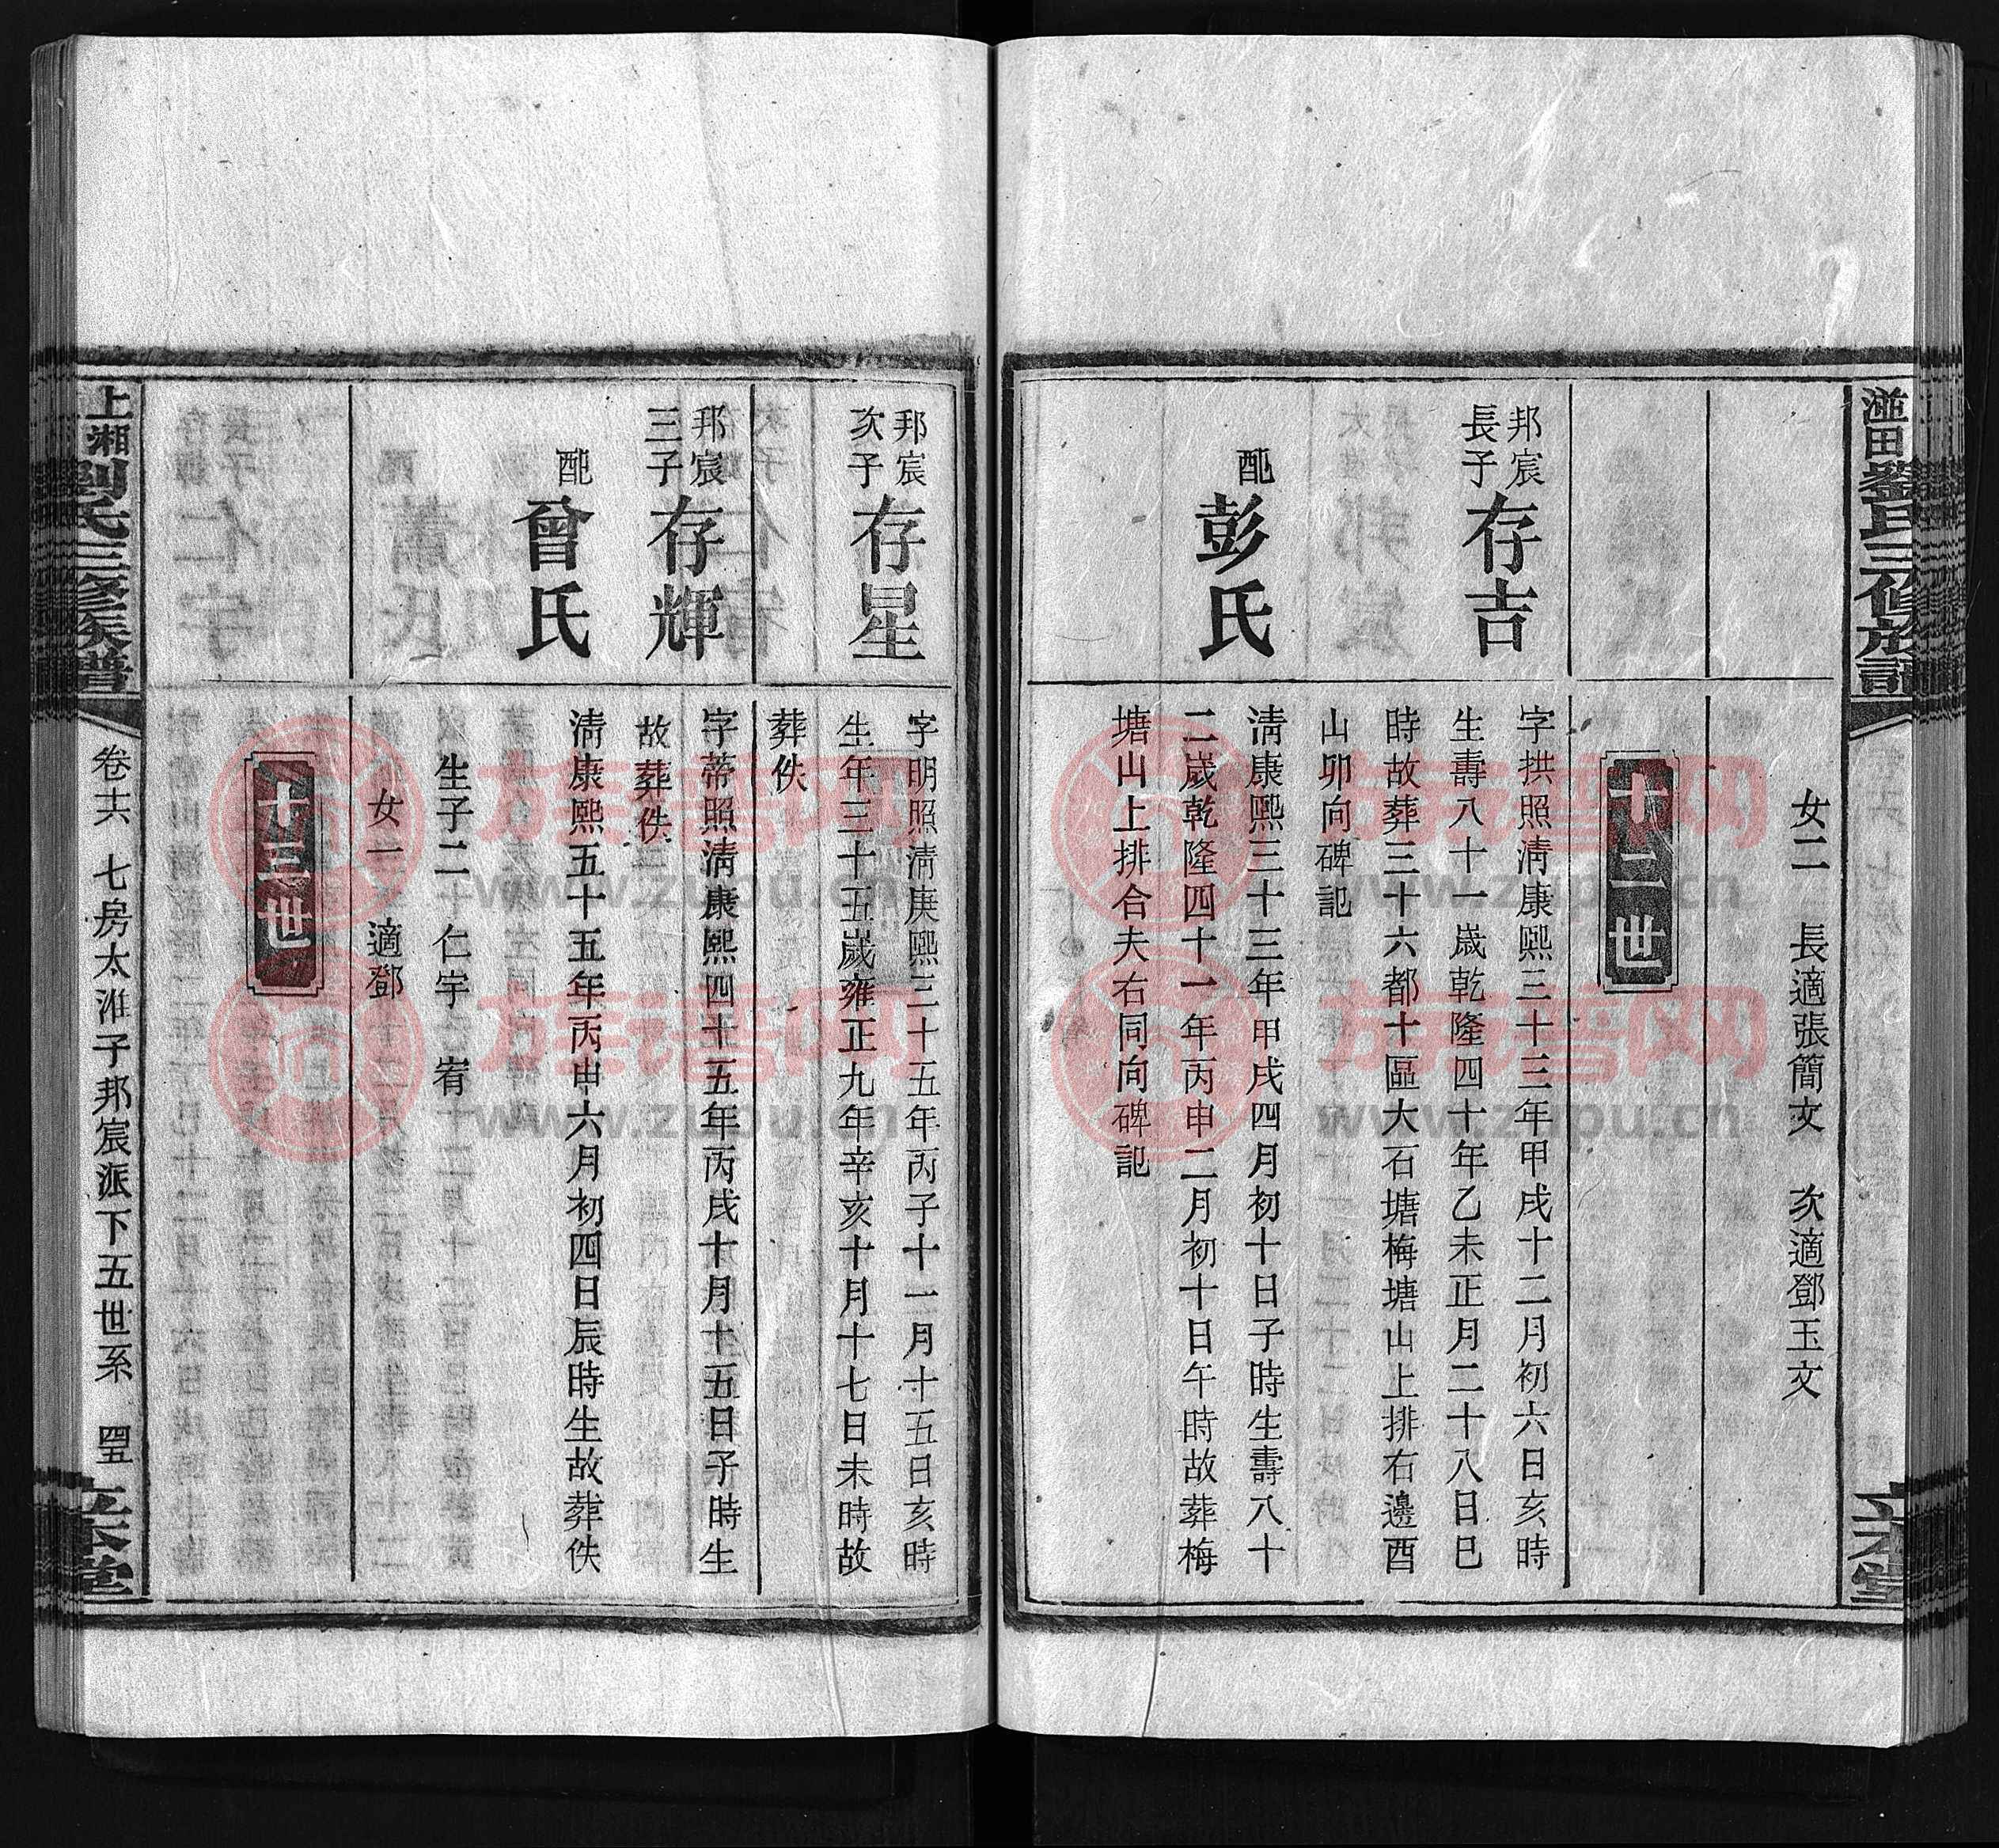 湴田劉氏三修族譜
立本堂
女二　長適張簡文　次適鄧玉文
十二世
邦宸
長子
存吉
字拱照淸康熙三十三年甲戌十二月初六日亥時
生壽八十一歲乾隆四十年乙未正月二十八日巳
時故葬三十六都十區大石塘梅塘山上排右邊酉
山卯向碑記
配
彭氏
淸康熙三十三年甲戌四月初十日子時生壽八十
二歲乾隆四十一年丙申二月初十日午時故葬梅
塘山上排合夫右同向碑記
邦宸
次子
存星
字明照淸康熙三十五年丙子十一月十五日亥時
生年三十五歲雍正九年辛亥十月十七日未時故
葬佚
邦宸
三子
存輝
字蒂照淸康熙四十五年丙戌十月十五日子時生
故葬佚
配
曾氏
淸康熙五十五年丙申六月初四日辰時生故葬佚
生子二　仁宇　宥
女一　適鄧
十三世
上湘劉氏三修族譜
卷六　七房太淮子邦宸派下五世系　四五
立本堂
族谱网
www.zupu.cn
族谱网
www.zupu.cn
族谱网
www.zupu.cn
族谱网
www.zupu.cn